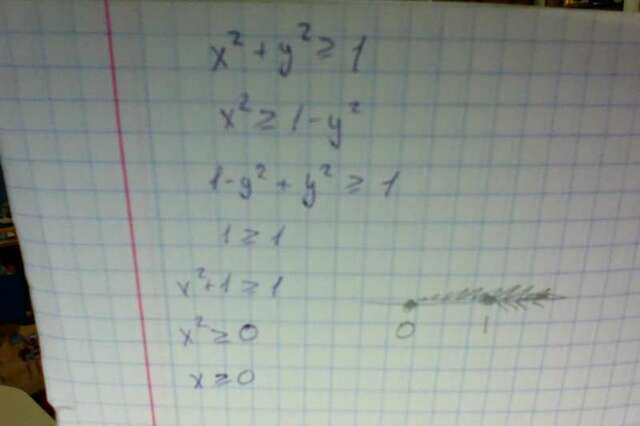 x² + y² ≥ 1
x² ≥ 1 - y²
1 - y² + y² ≥ 1
1 ≥ 1
x² + 1 ≥ 1
x² ≥ 0
x ≥ 0
0 1